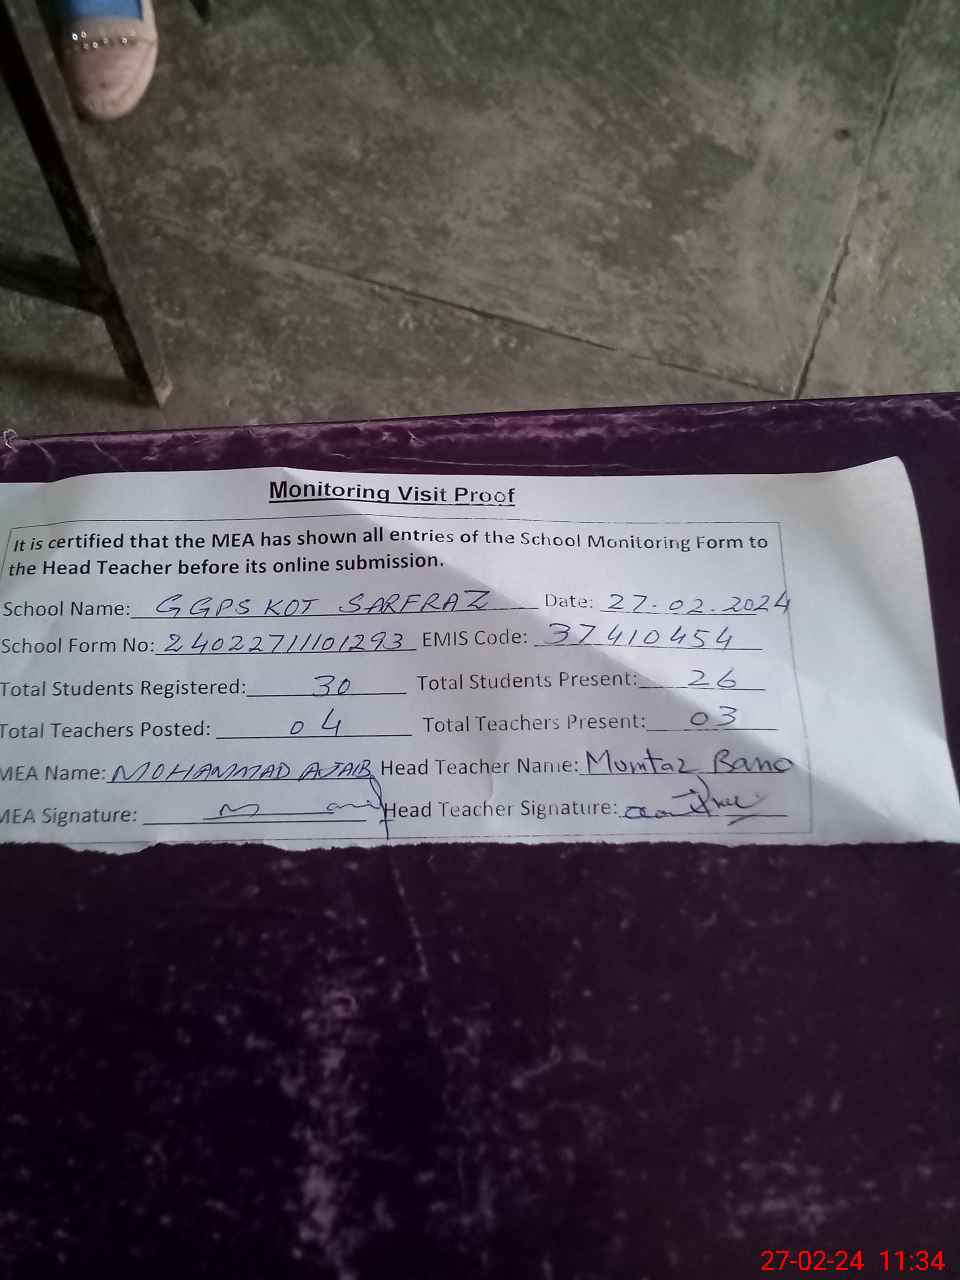 Monitoring Visit Proof
It is certified that the MEA has shown all entries of the School Monitoring Form to
the Head Teacher before its online submission.
School Name: GGPS KOT SARFRAZ Date: 27.02.2024
School Form No: 24022711101293 EMIS Code: 37410454
Total Students Registered: 30 Total Students Present: 26
Total Teachers Posted: 04 Total Teachers Present: 03
MEA Name: MOHAMMAD AJAIB Head Teacher Name: Mumtaz Bano
MEA Signature: Head Teacher Signature:
27-02-24 11:34